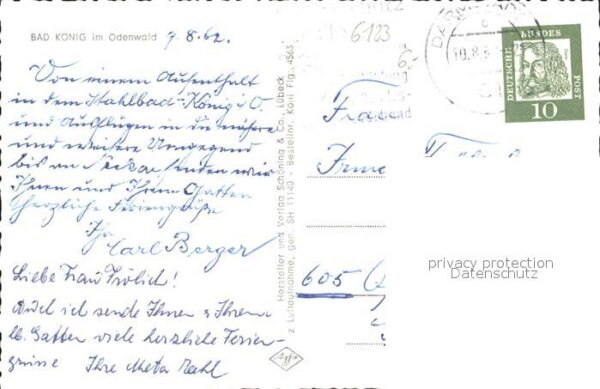 BAD KÖNIG im Odenwald 9.8.62.
Von einem Aufenthalt
in dem Stahlbad-König i/O.
und Ausflügen in die nähere
und weitere Umgegend
bis an Neckar senden wir
Ihnen und Ihrem Gatten
herzliche Feriengrüße
Ihr
Carl Berger
Liebe Frau Frölich!
Auch ich sende Ihnen & Ihrem
lb. Gatten viele herzliche Ferien-
grüsse Ihre Meta
Hersteller und Verlag Schöning & Co., Lübeck
z. Luftaufnahme, gen. SH 11140 Bestellnr. Köni Flg. 4563
Agfa
6123
10.8.6
DEUTSCHE BUNDES POST
10
Frau
605
privacy protection
Datenschutz